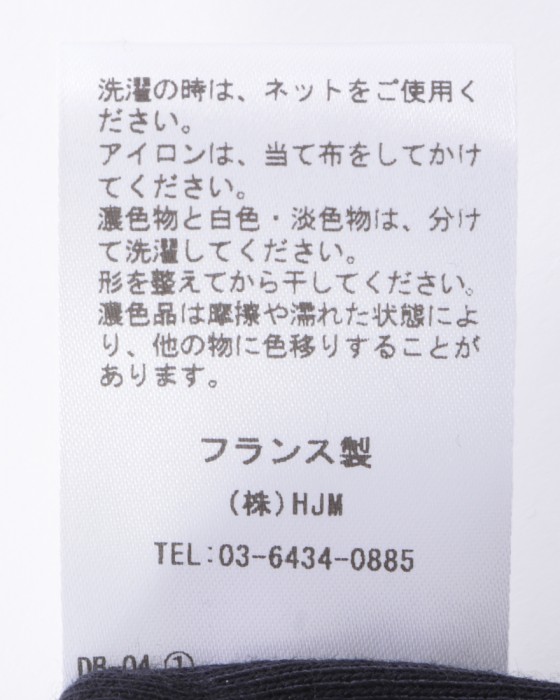 洗濯の時は、ネットをご使用く
ださい。
アイロンは、当て布をしてかけ
てください。
濃色物と白色・淡色物は、分け
て洗濯してください。
形を整えてから干してください。
濃色品は摩擦や濡れた状態によ
り、他の物に色移りすることが
あります。
フランス製
(株)HJM
TEL:03-6434-0885
DB-04 ①